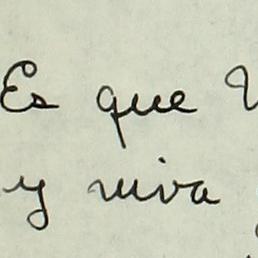 Es que
y viva